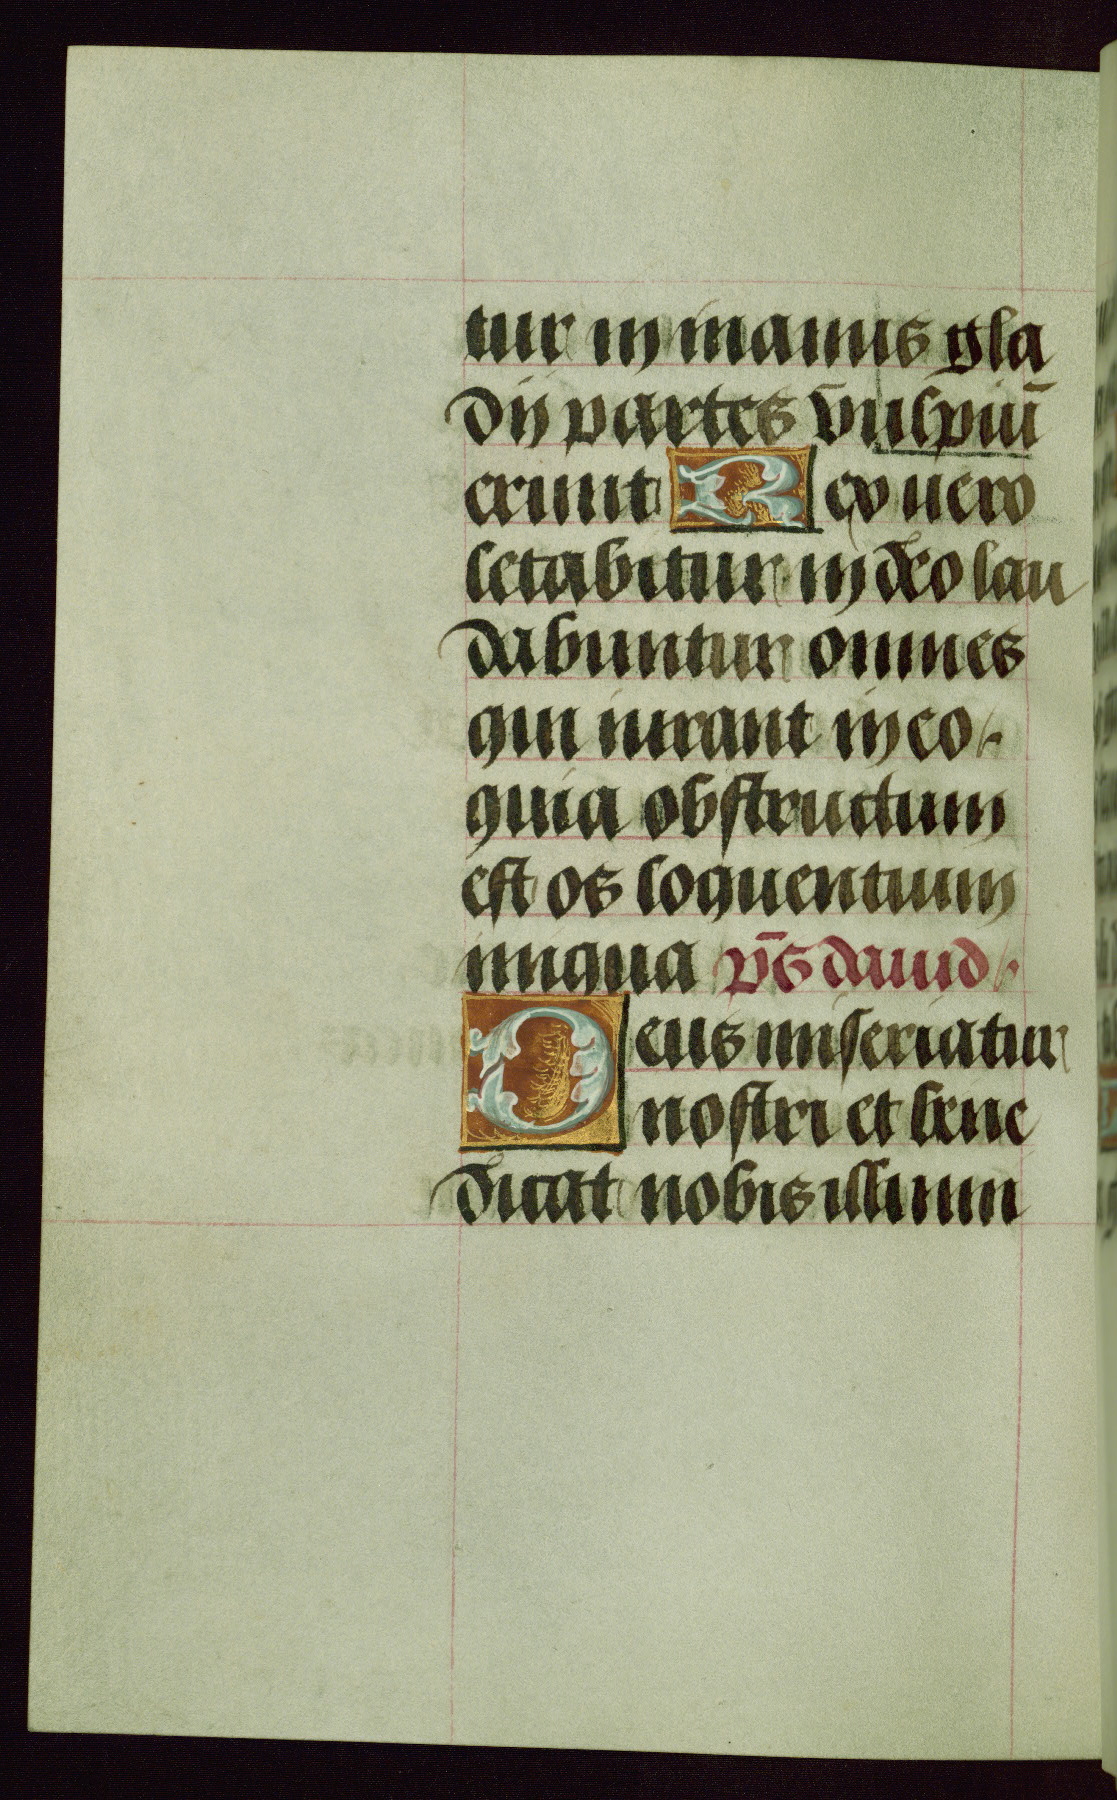 tur in manus gla
dij partes vulpiū
erunt Rex uero
letabitur in deo lau
dabuntur omnes
qui iurant in eo
quia obstructum
est os loquentium
iniqua p̄s dauid
Deus miseriatur
nostri et bene
dicat nobis illumi